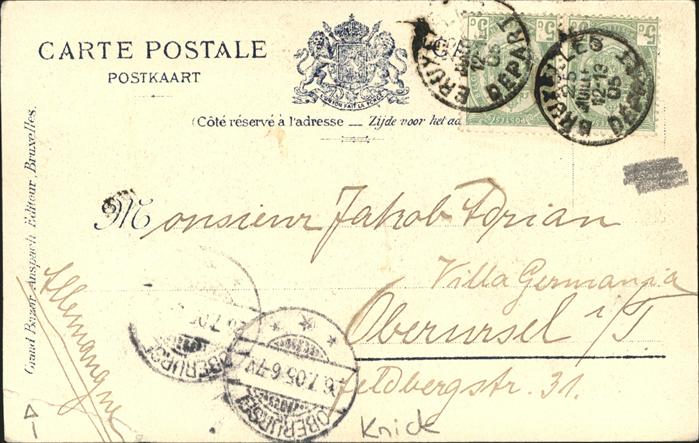 CARTE POSTALE
POSTKAART
L'UNION FAIT LA FORCE
(Côté réservé à l'adresse — Zijde voor het ad
5c 5c 5c
BRUXELLES
12
05
DEPART
BRUXELLES
25
JUIL
12-13
05
DEPART
Monsieur Jakob Adrian
Villa Germania
Oberursel i/T.
Feldbergstr. 31.
Allemagne
Grand Bazar Anspach, Editeur, Bruxelles.
OBERURSEL
OBERURSEL
26.7.05.6-7V
Knick